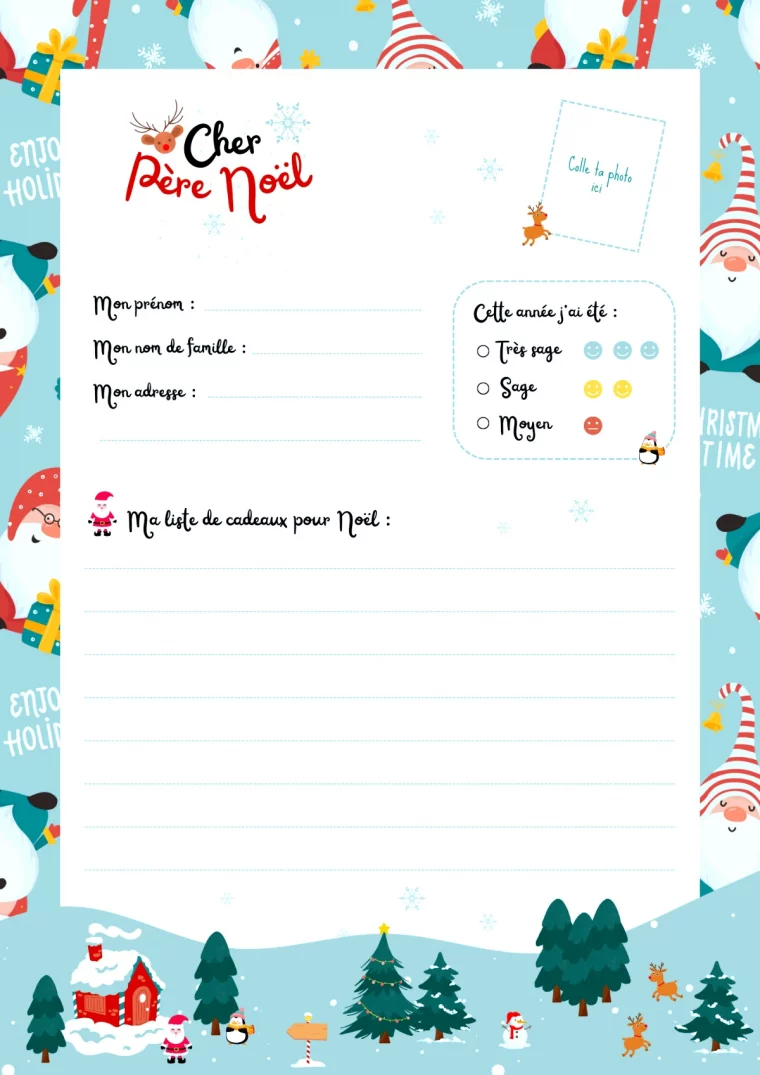 Cher
Père Noël
Colle ta photo
ici
Mon prénom :
Mon nom de famille :
Mon adresse :
Cette année j'ai été :
Très sage
Sage
Moyen
Ma liste de cadeaux pour Noël :
ENJO
HOLID
CHRISTM
TIME
ENJO
HOLID